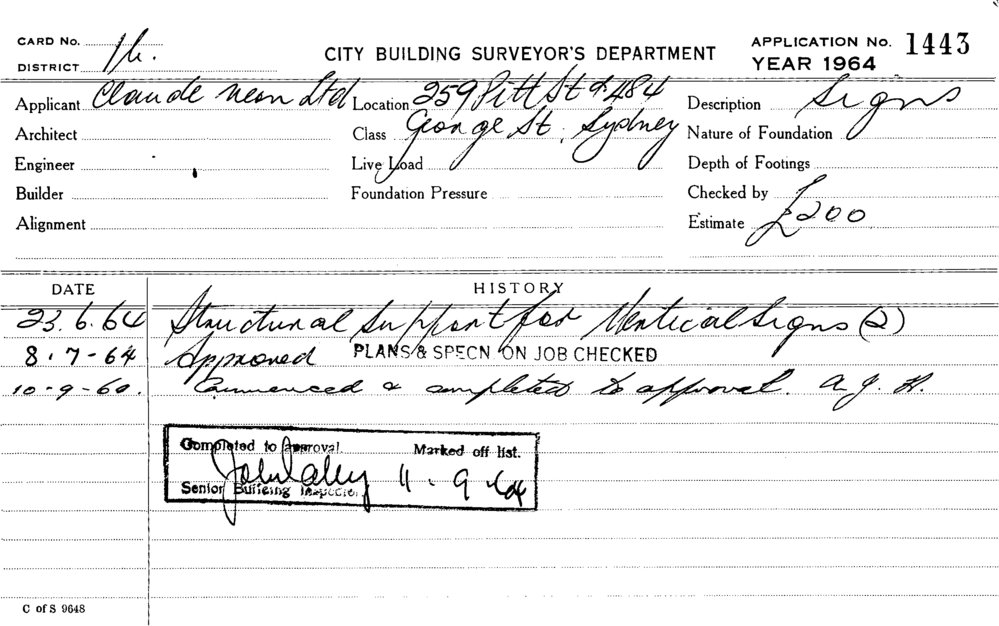 CARD No. 1/6.
CITY BUILDING SURVEYOR'S DEPARTMENT
APPLICATION No. 1443
DISTRICT
YEAR 1964
Applicant Claude Neon Ltd
Location 259 Pitt St & 484
Description Signs
Architect
Class George St. Sydney
Nature of Foundation
Engineer
Live Load
Depth of Footings
Builder
Foundation Pressure
Checked by
Alignment
Estimate £200
DATE HISTORY
23.6.64 Structural Support for Vertical Signs (2)
8.7-64 Approved PLANS & SPECN ON JOB CHECKED
10-9-60. Commenced & completed to approval. A.J.H.
Completed to Approval. Marked off list.
11.9.64
Senior Building Inspector
C of S 9648